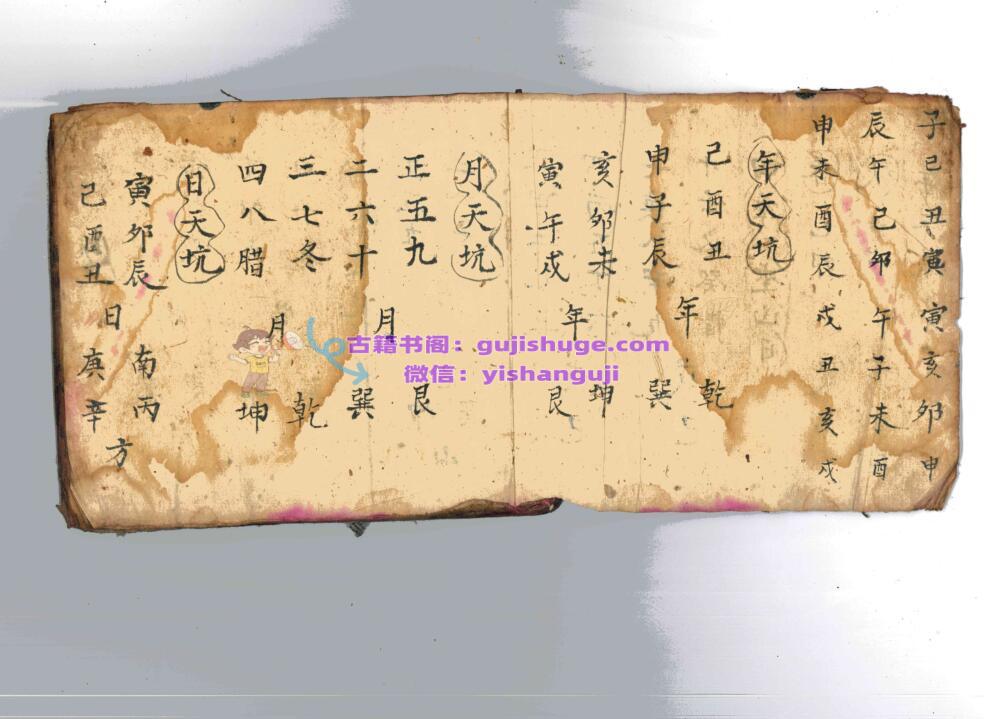 子巳丑寅寅亥卯申
辰午己卯午子未酉
申未酉辰戌丑亥戌
年天坑
己酉丑
年
乾
申子辰
巽
亥卯未
年
坤
寅午戌
艮
月天坑
正五九
月
艮
二六十
巽
三七冬
月
乾
四八腊
坤
日天坑
寅卯辰
日
南丙
己酉丑
庚辛
方
古籍书阁：gujishuge.com
微信：yishanguji